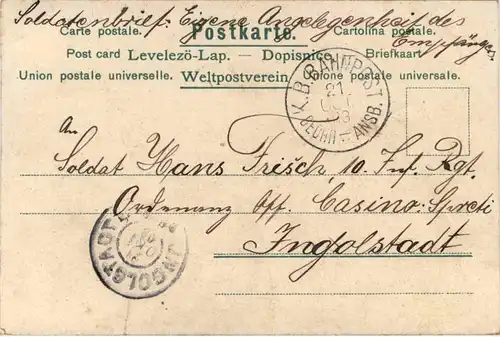 Soldatenbrief. Eigene Angelegenheit des Empfängers
Carte postale. Postkarte. Cartolina postale.
Post card Levelező-Lap. — Dopisnice Briefkaart
Union postale universelle. Weltpostverein. postale universale.
K.B. BAHNPOST
21
ANSB.
An
Soldat Hans Frisch, 10. Inf. Rgt.
Ordonanz Off. Casino: Spreti
Ingolstadt
INGOLSTADT